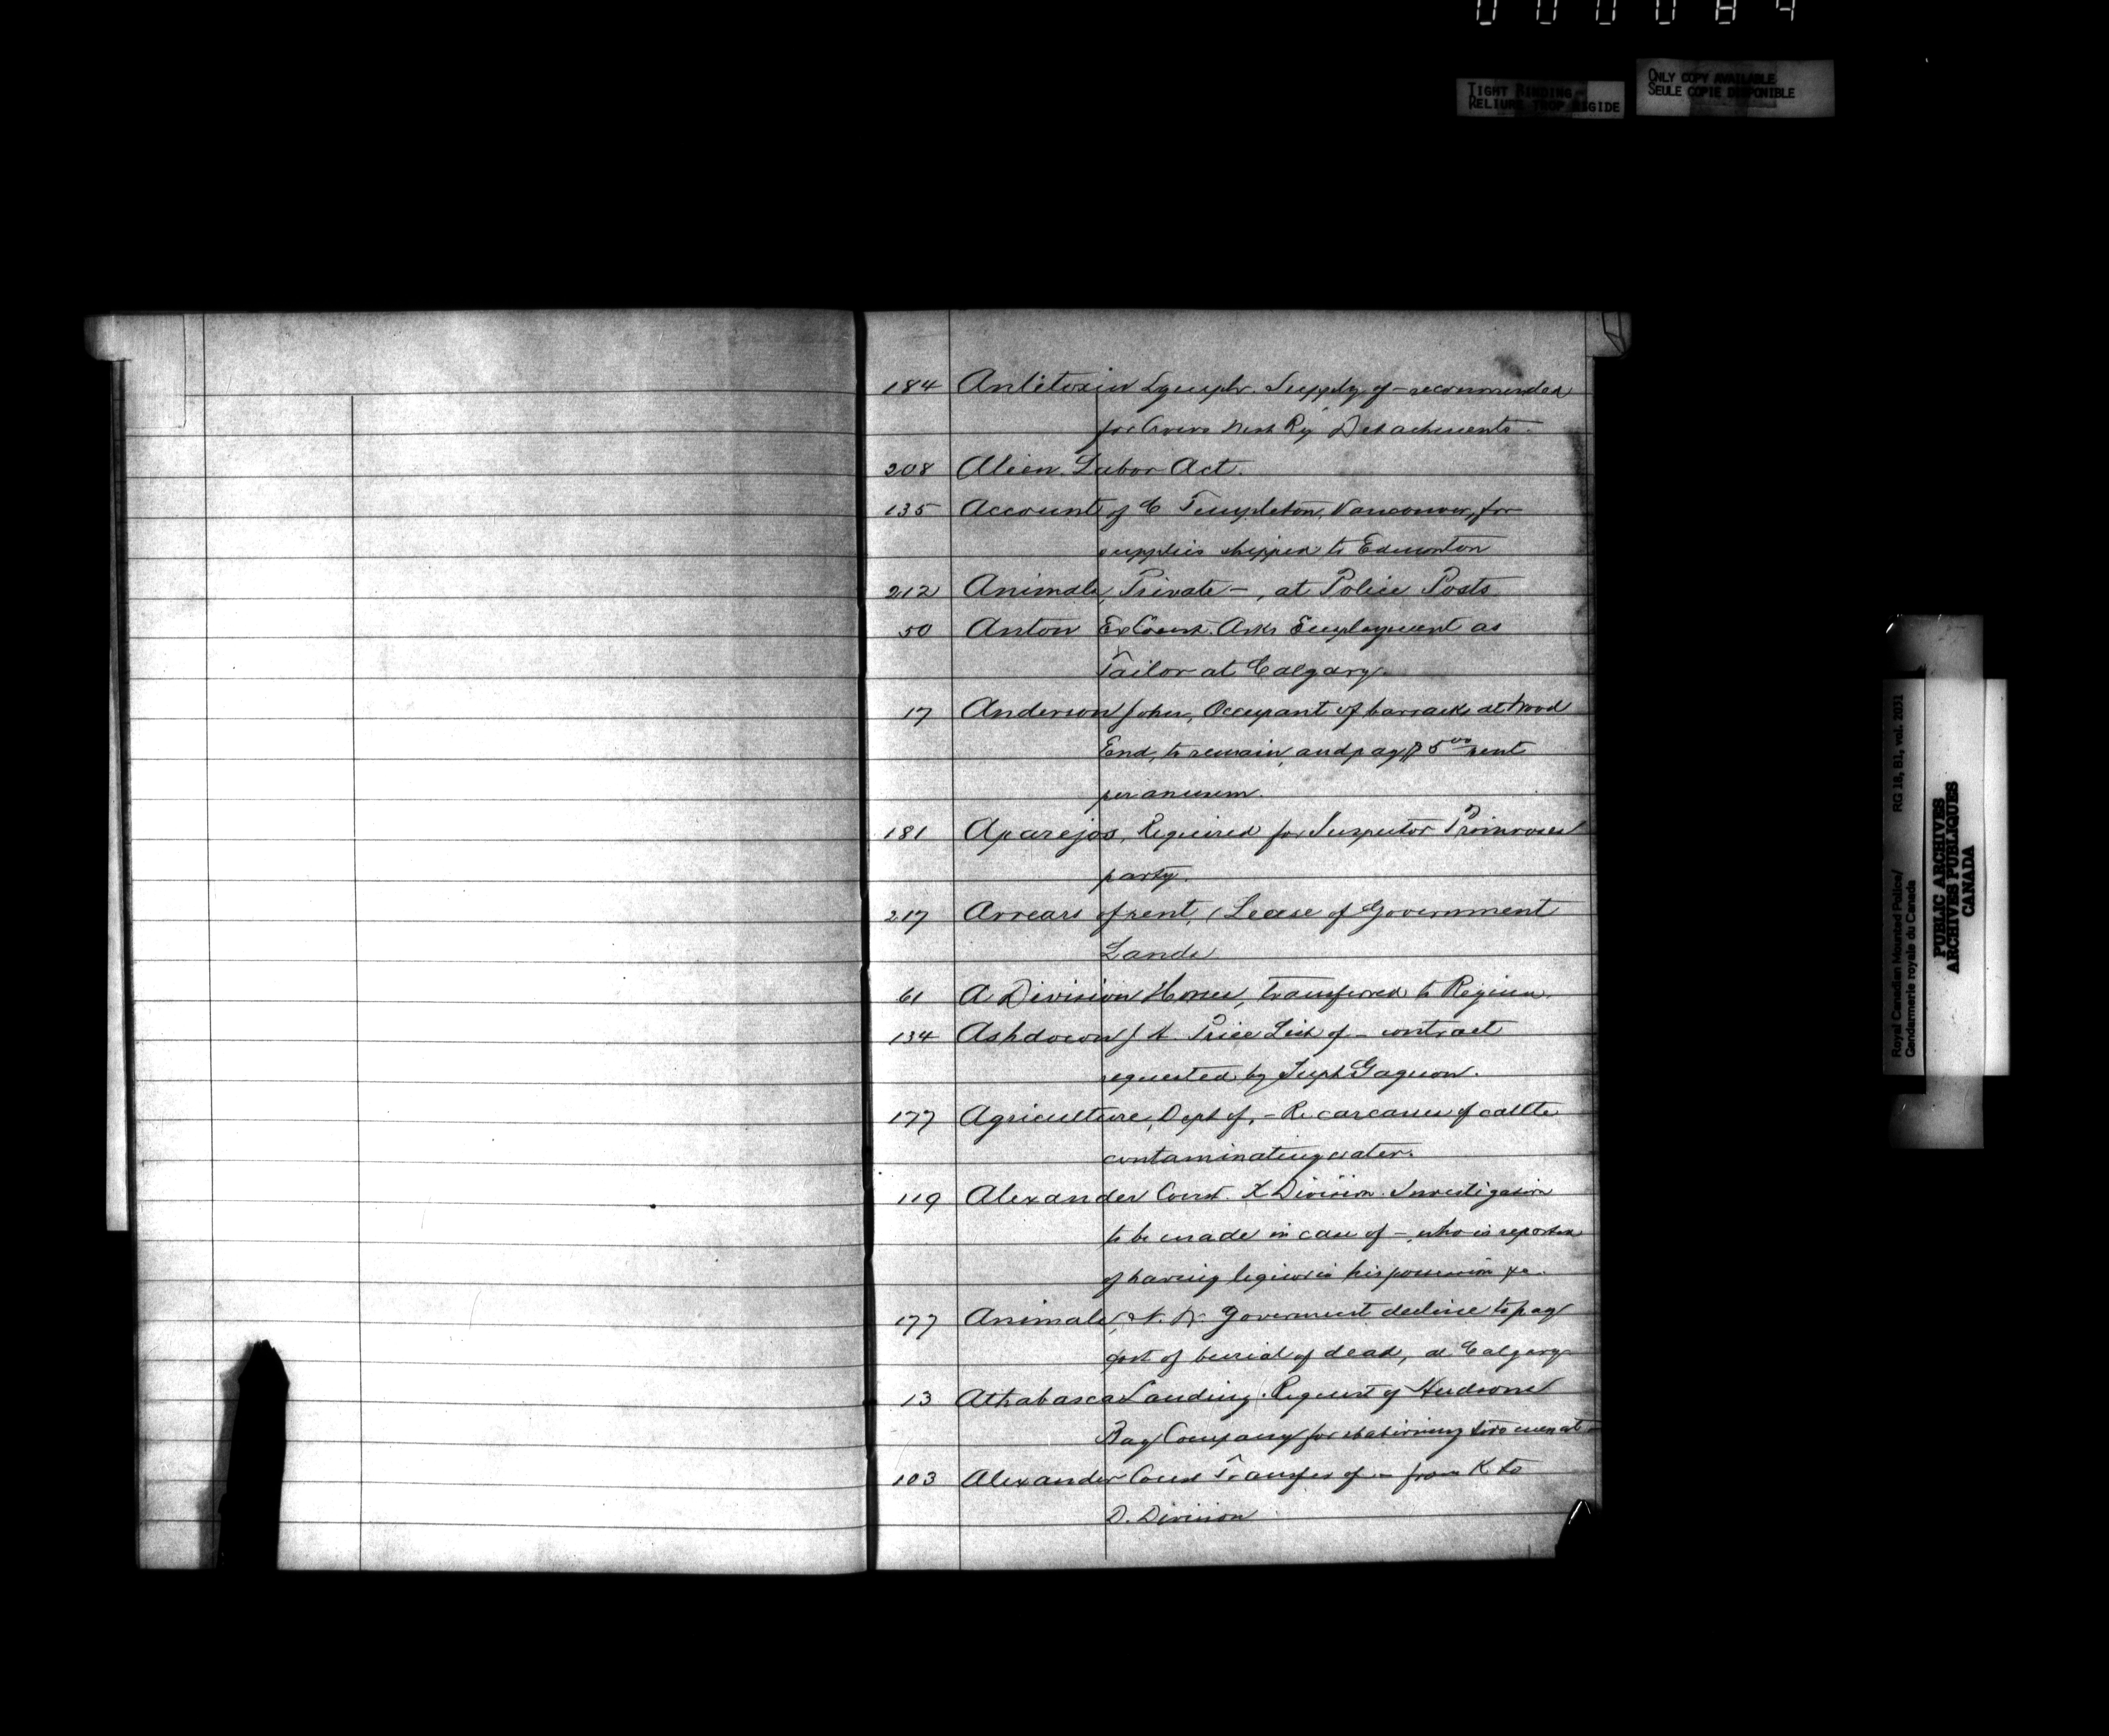 000084
TIGHT BINDING
RELIURE TROP RIGIDE
ONLY COPY AVAILABLE
SEULE COPIE DISPONIBLE
184 Antitoxin Lymph. Supply of - recommended
for Crows Nest Ry Detachments.
208 Alien Labor Act.
135 Account of C Templeton, Vancouver, for
supplies shipped to Edmonton
212 Animals, Private -, at Police Posts
50 Anton Ex Const. Asks Employment as
Tailor at Calgary.
17 Anderson John, Occupant of barracks at Wood
End, to remain, and pay $5 00 rent
per annum.
181 Aparejos, Required for Inspector Primroses
party.
217 Arrears of rent, (Lease of Government
Lands
61 A Division Horses, transferred to Regina.
134 Ashdown J H. Price List of - contract
requested by Supt Gagnon.
177 Agriculture, Dept of, - Re carcases of cattle
contaminating water.
119 Alexander Const. K Division. Investigation
to be made in case of -, who is reported
of having liquor in his possession &c.
177 Animals, N. W. Goverment decline to pay
cost of burial of dead, at Calgary
13 Athabasca Landing. Request of Hudsons
Bay Company for stationing two men at -
103 Alexander Const Transfer of - from K to
D. Division
Royal Canadian Mounted Police/ RG 18, B1, vol. 2031
Gendarmerie royale du Canada
PUBLIC ARCHIVES
ARCHIVES PUBLIQUES
CANADA